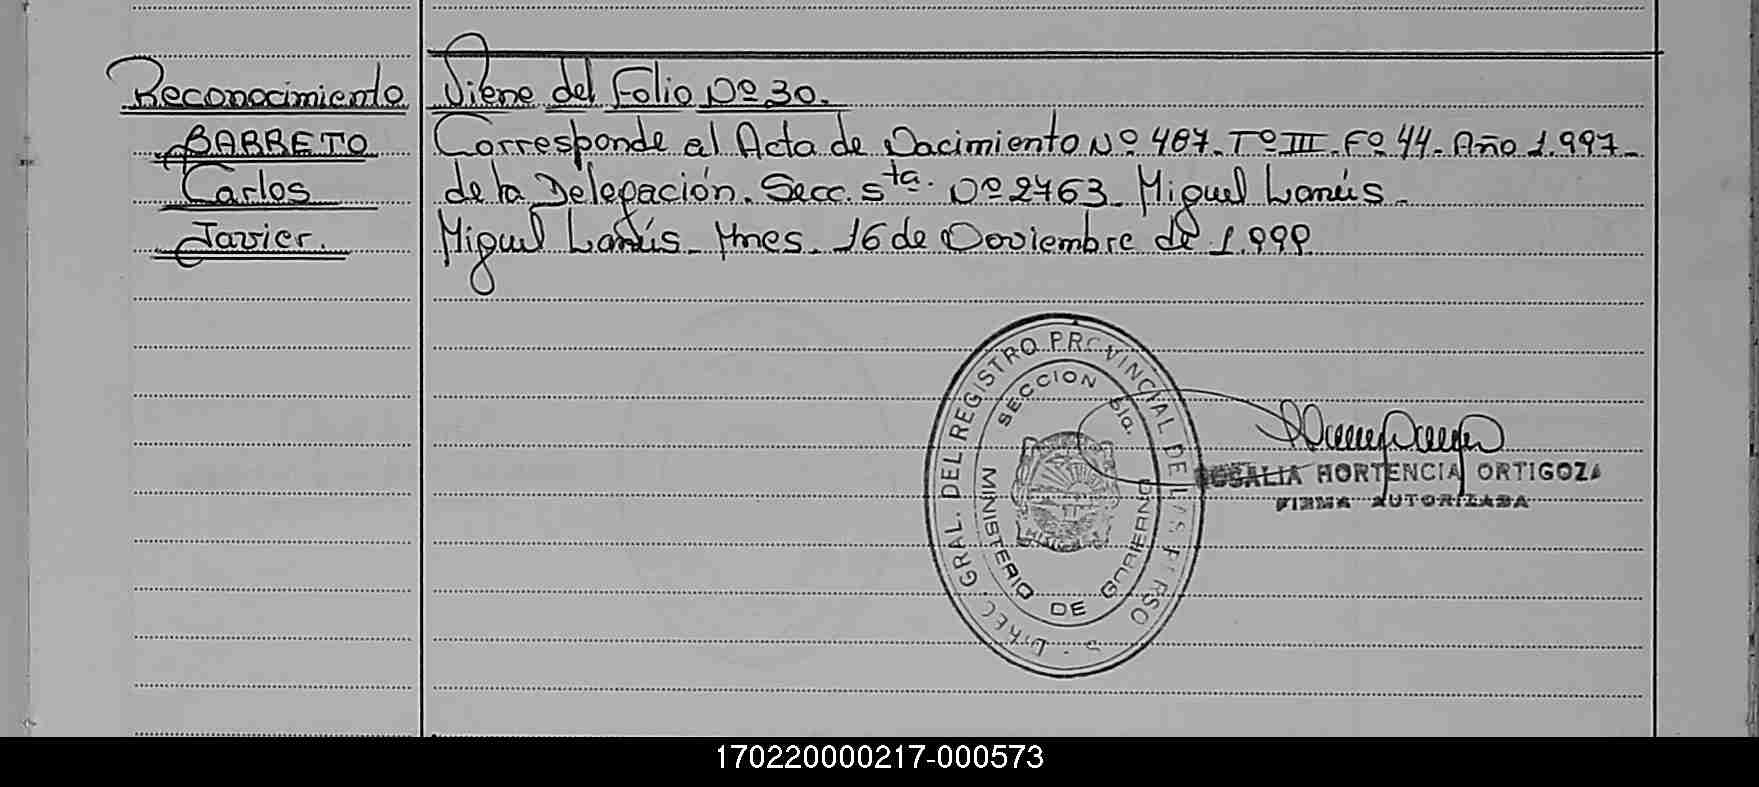 Reconocimiento Viene del Folio Nº 30.
BARRETO Corresponde al Acta de Nacimiento Nº 487. Tº III. Fº 44. Año 1.997.
Carlos de la Delegación. Secc. 5ta. Nº 2463. Miguel Lanús.
Javier. Miguel Lanús. Mnes. 16 de Noviembre de 1.999.
DIREC. GRAL. DEL REGISTRO PROVINCIAL DE LAS PERSO S
SECCION 5ta.
MINISTERIO DE GOBIERNO
ROSALIA HORTENCIA ORTIGOZA
FIRMA AUTORIZADA
170220000217-000573